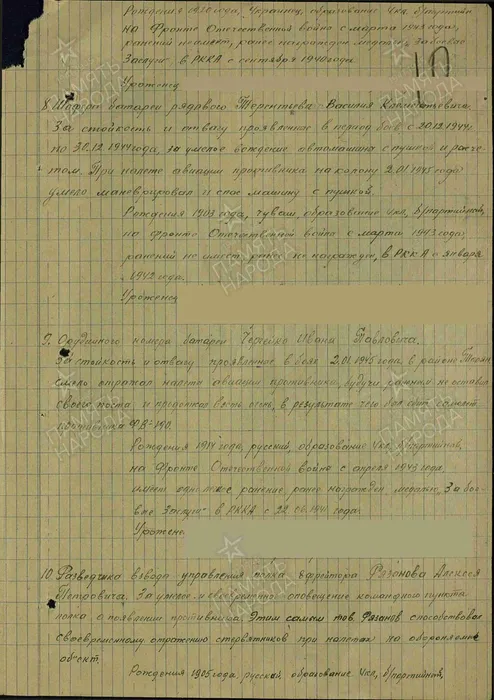 Рождения 1920 года, Украинец, образование 4кл, б/партийный
на Фронте Отечественной война с марта 1943 года,
ранений не имеет, ранее награжден медалью, За боевые
Заслуги" в РККА с сентября 1940 года
Уроженец
10
8. Шофера батареи рядового Терентьева Василия
За стойкость и отвагу проявление в период боев с 20.12.1944г
по 30.12.1944 года, за умелое вождение автомашина с пушкой и расче-
том. При налете авиации противника на колону 2.01.1945 года
умело маневрировал и спас машину с пушкой.
Рождения 1903 года, чуваш образование 4кл, б/партийной,
на фронте Отечественной война с марта 1943 года
ранений не имеет, ранее не награжден, в РККА с января
1942 года.
Уроженец
9. Орудийного номера батареи Ивана Павловича.
За стойкость и отвагу проявленное в боях 2.01.1945 года, в районе
смело отражал налета авиации противника, будучи ранным не оставил
своего поста и продолжал вость огонь, в результате чего бол сбит самолет
противника ФВ-190.
Рождения 1914 года, русский, образование 4кл, б/партийной,
на Фронте Отечественной война с апреля 1943 года
имеет одно ранение ранее награжден медалью, За бое-
вые Заслуги" в РККА с 1941 года
Уроженец
10. Разведчика взвода управления полка ефрейтора Рязанова Алексея
Петровича. За умелое и своевременно оповещение командного пункта
полка о появлении противника. Этим самым тов. Рязанов способствовал
своевременному отражению стервятников при налетах на обороняемой
объект.
Рождения 1905 года, русский, образование 4кл, б/партийной,
ПАМЯТЬ НАРОДА
ПАМЯТЬ НАРОДА
ПАМЯТЬ НАРОДА
ПАМЯТЬ НАРОДА
ПАМЯТЬ НАРОДА
ПАМЯТЬ НАРОДА